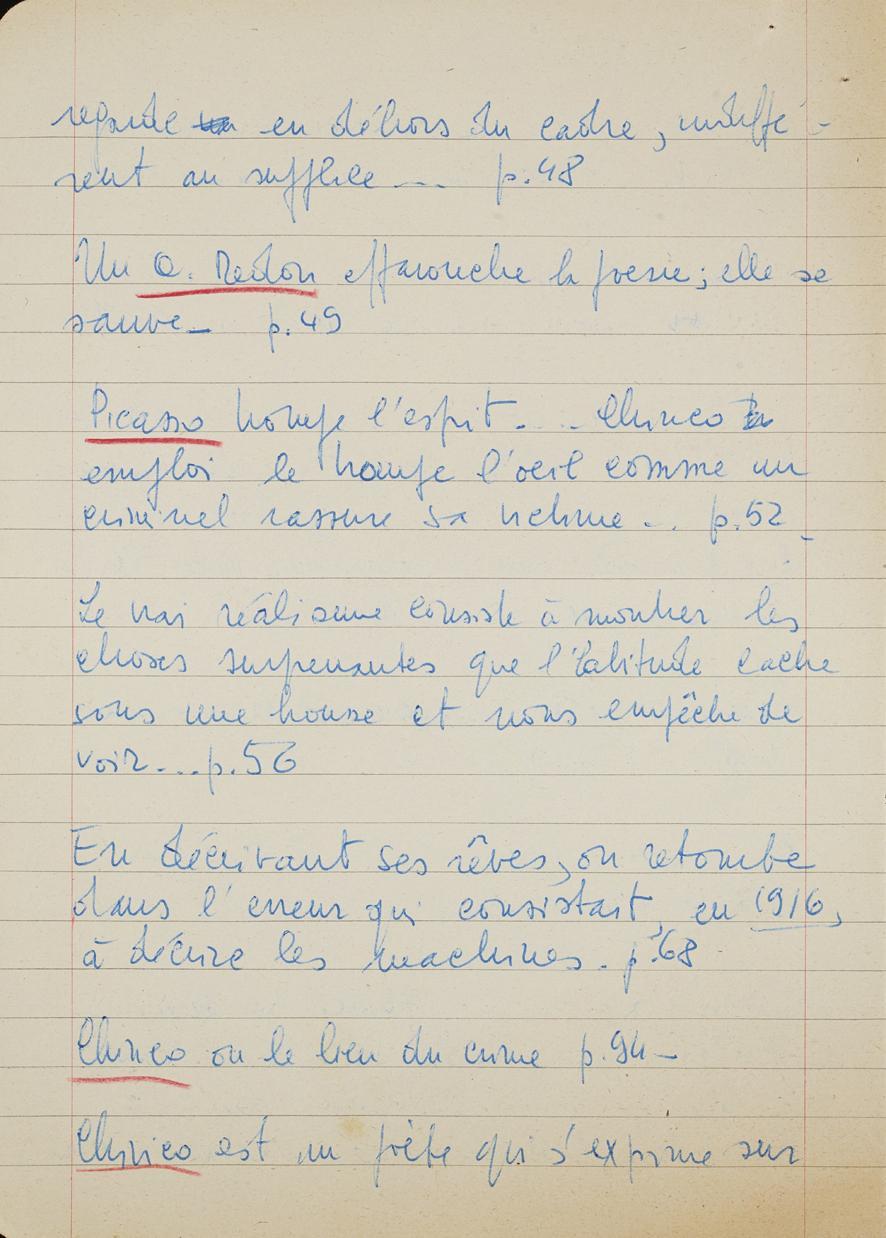 regarde en déhors du cadre, indiffé-
rent au supplice.... p.48
Un O. Redon effarouche la poesie; elle se
sauve_ p.49
Picasso trompe l'esprit.... Chirico
emploi le trompe l'oeil comme un
criminel rassure sa victime... p.52
Le vrai réalisme consiste à montrer les
choses surprenantes que l'habitude cache
sous une housse et nous empêche de
voir....p.56
En décrivant ses rêves, on retombe
dans l'erreur qui consistait, en 1916,
à décrire les machines. p.68
Chirico ou le lieu du crime p.94_
Chirico est un poète qui s'exprime sur